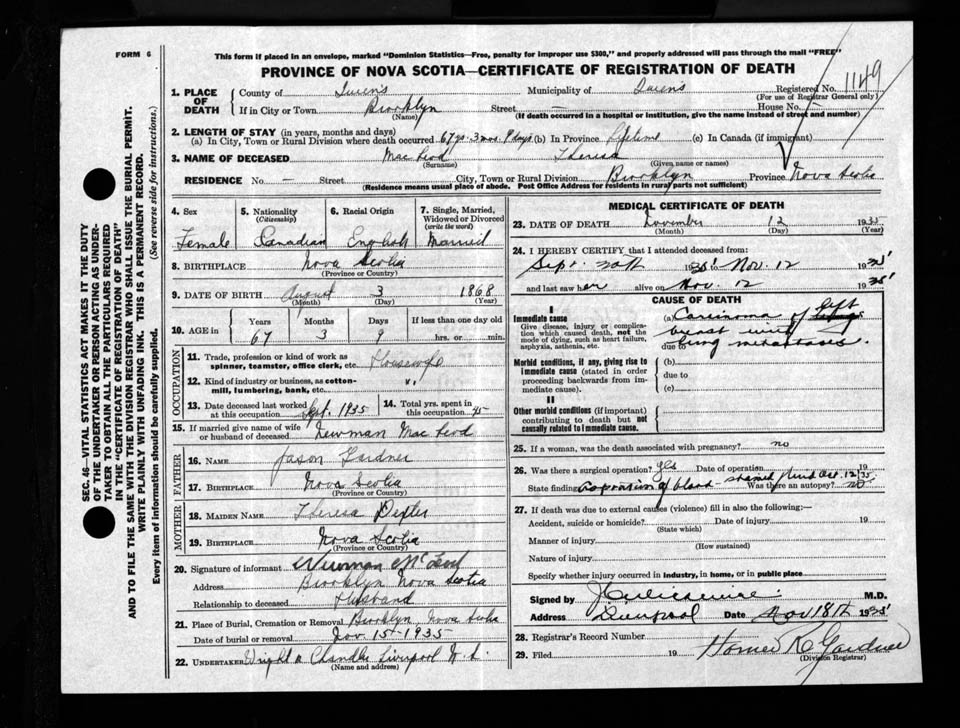 FORM 6
This form if placed in an envelope, marked "Dominion Statistics—Free, penalty for improper use $300," and properly addressed will pass through the mail "FREE"
PROVINCE OF NOVA SCOTIA—CERTIFICATE OF REGISTRATION OF DEATH
1. PLACE OF DEATH County of Queens Municipality of Queens Registered No. 1149
(For use of Registrar General only)
If in City or Town Brooklyn Street — House No. —
(Name) (If death occurred in a hospital or institution, give the name instead of street and number)
2. LENGTH OF STAY (in years, months and days)
(a) In City, Town or Rural Division where death occurred 67 yrs. 3 mos. 9 days (b) In Province lifetime (c) In Canada (if immigrant)
3. NAME OF DECEASED MacLeod Theresa
(Surname) (Given name or names)
RESIDENCE No. — Street City, Town or Rural Division Brooklyn Province Nova Scotia
(Residence means usual place of abode. Post Office Address for residents in rural parts not sufficient)
4. Sex 5. Nationality 6. Racial Origin 7. Single, Married, Widowed or Divorced
(Citizenship) (write the word)
Female Canadian English Married
8. BIRTHPLACE Nova Scotia
(Province or Country)
9. DATE OF BIRTH August 3 1868
(Month) (Day) (Year)
10. AGE in Years Months Days If less than one day old
67 3 9 hrs. or min.
OCCUPATION
11. Trade, profession or kind of work as spinner, teamster, office clerk, etc. Housewife
12. Kind of industry or business, as cotton-mill, lumbering, bank, etc. "
13. Date deceased last worked at this occupation Sept. 1935 14. Total yrs. spent in this occupation 45
15. If married give name of wife or husband of deceased Newman MacLeod
FATHER
16. Name Jason Gardner
17. Birthplace Nova Scotia
(Province or Country)
MOTHER
18. Maiden Name Theresa Dexter
19. Birthplace Nova Scotia
(Province or Country)
20. Signature of informant Newman McLeod
Address Brooklyn Nova Scotia
Relationship to deceased Husband
21. Place of Burial, Cremation or Removal Brooklyn, Nova Scotia
Date of burial or removal Nov. 15—1935
22. UNDERTAKER Wright & Chandler Liverpool N.S.
(Name and address)
MEDICAL CERTIFICATE OF DEATH
23. DATE OF DEATH November 12 1935
(Month) (Day) (Year)
24. I HEREBY CERTIFY that I attended deceased from:
Sept. 20th 1935 Nov. 12 1935
and last saw her alive on Nov. 12 1935
CAUSE OF DEATH
I
Immediate cause (a) Carcinoma of left
Give disease, injury or complication which caused death, not the mode of dying, such as heart failure, asphyxia, asthenia, etc.
breast with
due to lung metastases.
Morbid conditions, if any, giving rise to immediate cause (stated in order proceeding backwards from immediate cause).
(b)
due to
(c)
II
Other morbid conditions (if important) contributing to death but not causally related to immediate cause.
25. If a woman, was the death associated with pregnancy? no
26. Was there a surgical operation? yes Date of operation 19
State findings aspiration of blood-stained fluid Oct. 12/35 Was there an autopsy? no
27. If death was due to external causes (violence) fill in also the following:—
Accident, suicide or homicide? Date of injury 19
(State which)
Manner of injury
(How sustained)
Nature of injury
Specify whether injury occurred in industry, in home, or in public place
Signed by M.D.
Address Liverpool Date Nov 18th 1935
28. Registrar's Record Number
29. Filed 19 Homer R. Gardner
(Division Registrar)
SEC. 46—VITAL STATISTICS ACT MAKES IT THE DUTY
OF THE UNDERTAKER OR PERSON ACTING AS UNDER-
TAKER TO OBTAIN ALL THE PARTICULARS REQUIRED
IN THE "CERTIFICATE OF REGISTRATION OF DEATH" AND TO FILE THE SAME WITH THE DIVISION REGISTRAR WHO SHALL ISSUE THE BURIAL PERMIT.
WRITE PLAINLY WITH UNFADING INK. THIS IS A PERMANENT RECORD.
Every item of information should be carefully supplied. (See reverse side for instructions.)